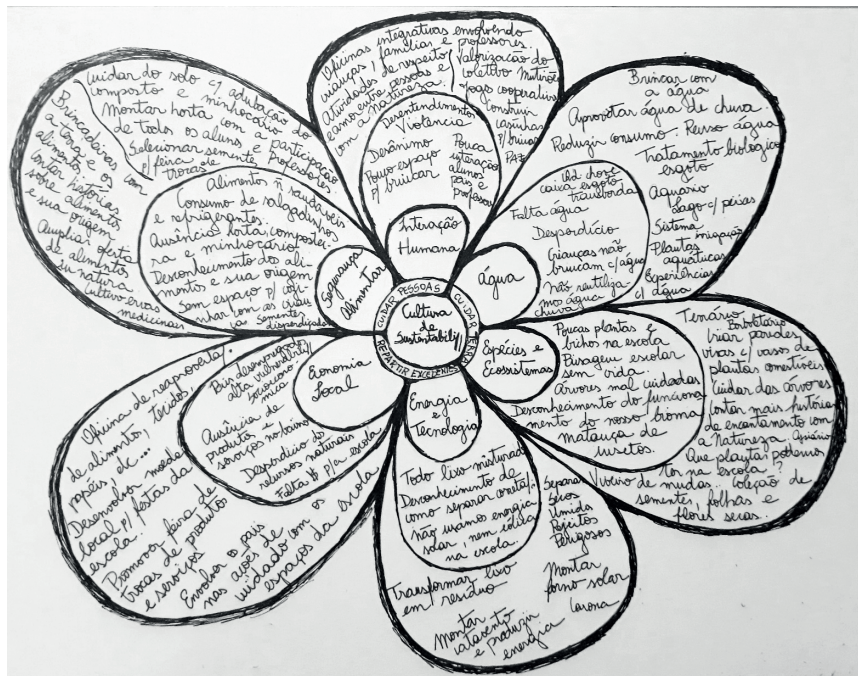 Cultura
de
Sustentabili//
CUIDAR PESSOAS
CUIDAR TERRA
REPARTIR EXCELENTES
Interação
Humana
Desentendimentos
Violência
Desânimo
Pouco espaço
p/ brincar
Pouca
interação
alunos
pais e
professor
Oficinas integrativas envolvendo
crianças, famílias e professores.
Atividades de respeito
e amor entre pessoas e
com a natureza.
Valorização do
coletivo Mutirões
Jogo cooperativo
Construir
casinhas
p/ brincar
PAZ
água
caixa esgoto
transborda
Falta água
Desperdício
Crianças não
brincam c/ água
não reutiliza-
mos água
chuva
Brincar com
a água
Aproveitar água de chuva.
Reduzir consumo. Reuso água
Tratamento biológico
esgoto
Aquario
Lago c/ peixes
Sistema
irrigação
Plantas
aquáticas
Experiências
c/ água
Espécies e
Ecossistemas
Poucas plantas e
bichos na escola
Paisagem escolar
sem vida.
Árvores mal cuidadas
Desconhecimento do funciona
mento do nosso bioma
matança de
insetos.
Borboletário
Criar paredes
vivas c/ vasos de
plantas comestíveis
Cuidar das árvores
Contar mais história
de encantamento com
a Natureza.
Que plantas podemos
ter na escola?
Viveiro de mudas. Coleção de
sementes, folhas e
flores secas.
Energia
e
Tecnologia
Todo lixo misturado
Desconhecimento de
como separar correta//.
não usamos energia
solar, nem eólica
na escola.
Separar
Secos
Úmidos
Rejeitos
Perigosos
Transformar lixo
em resíduo
Montar
forno solar
Carona
Montar
catavento
e produzir
energia
Economia
Local
Pais desempregados
alta vulnerabili//
socioeconô-
mica
Ausência de
produto e
serviços no bairro
Desperdício dos
recursos naturais
Falta $ p/ a escola
Oficina de reaproveita/
de alimento, tecidos,
papéis, etc...
Desenvolver moeda
local p/ festas da
escola.
Promover feira de
trocas de produto
e serviços
Envolver os pais
nas ações de
cuidado com os
espaços da escola
Segurança
Alimentar
Alimentos ñ saudáveis
Consumo de salgadinhos
e refrigerantes.
Ausência horta, composte-
ra e minhocário
Desconhecimento do ali-
mento e sua origem
Sem espaço p/ cozi-
nhar com as crian
ças Sementes
desperdiçadas
Cuidar do solo c/ adubação do
composto e minhocário
Montar horta com a participação
de todos os alunos e professores
Selecionar semente
p/ feira de
trocas
Brincadeiras com
a terra e os
alimentos
Contar histórias
sobre alimentos
e sua origem
Ampliar oferta
de alimentos
in natura
Cultivo ervas
medicinais